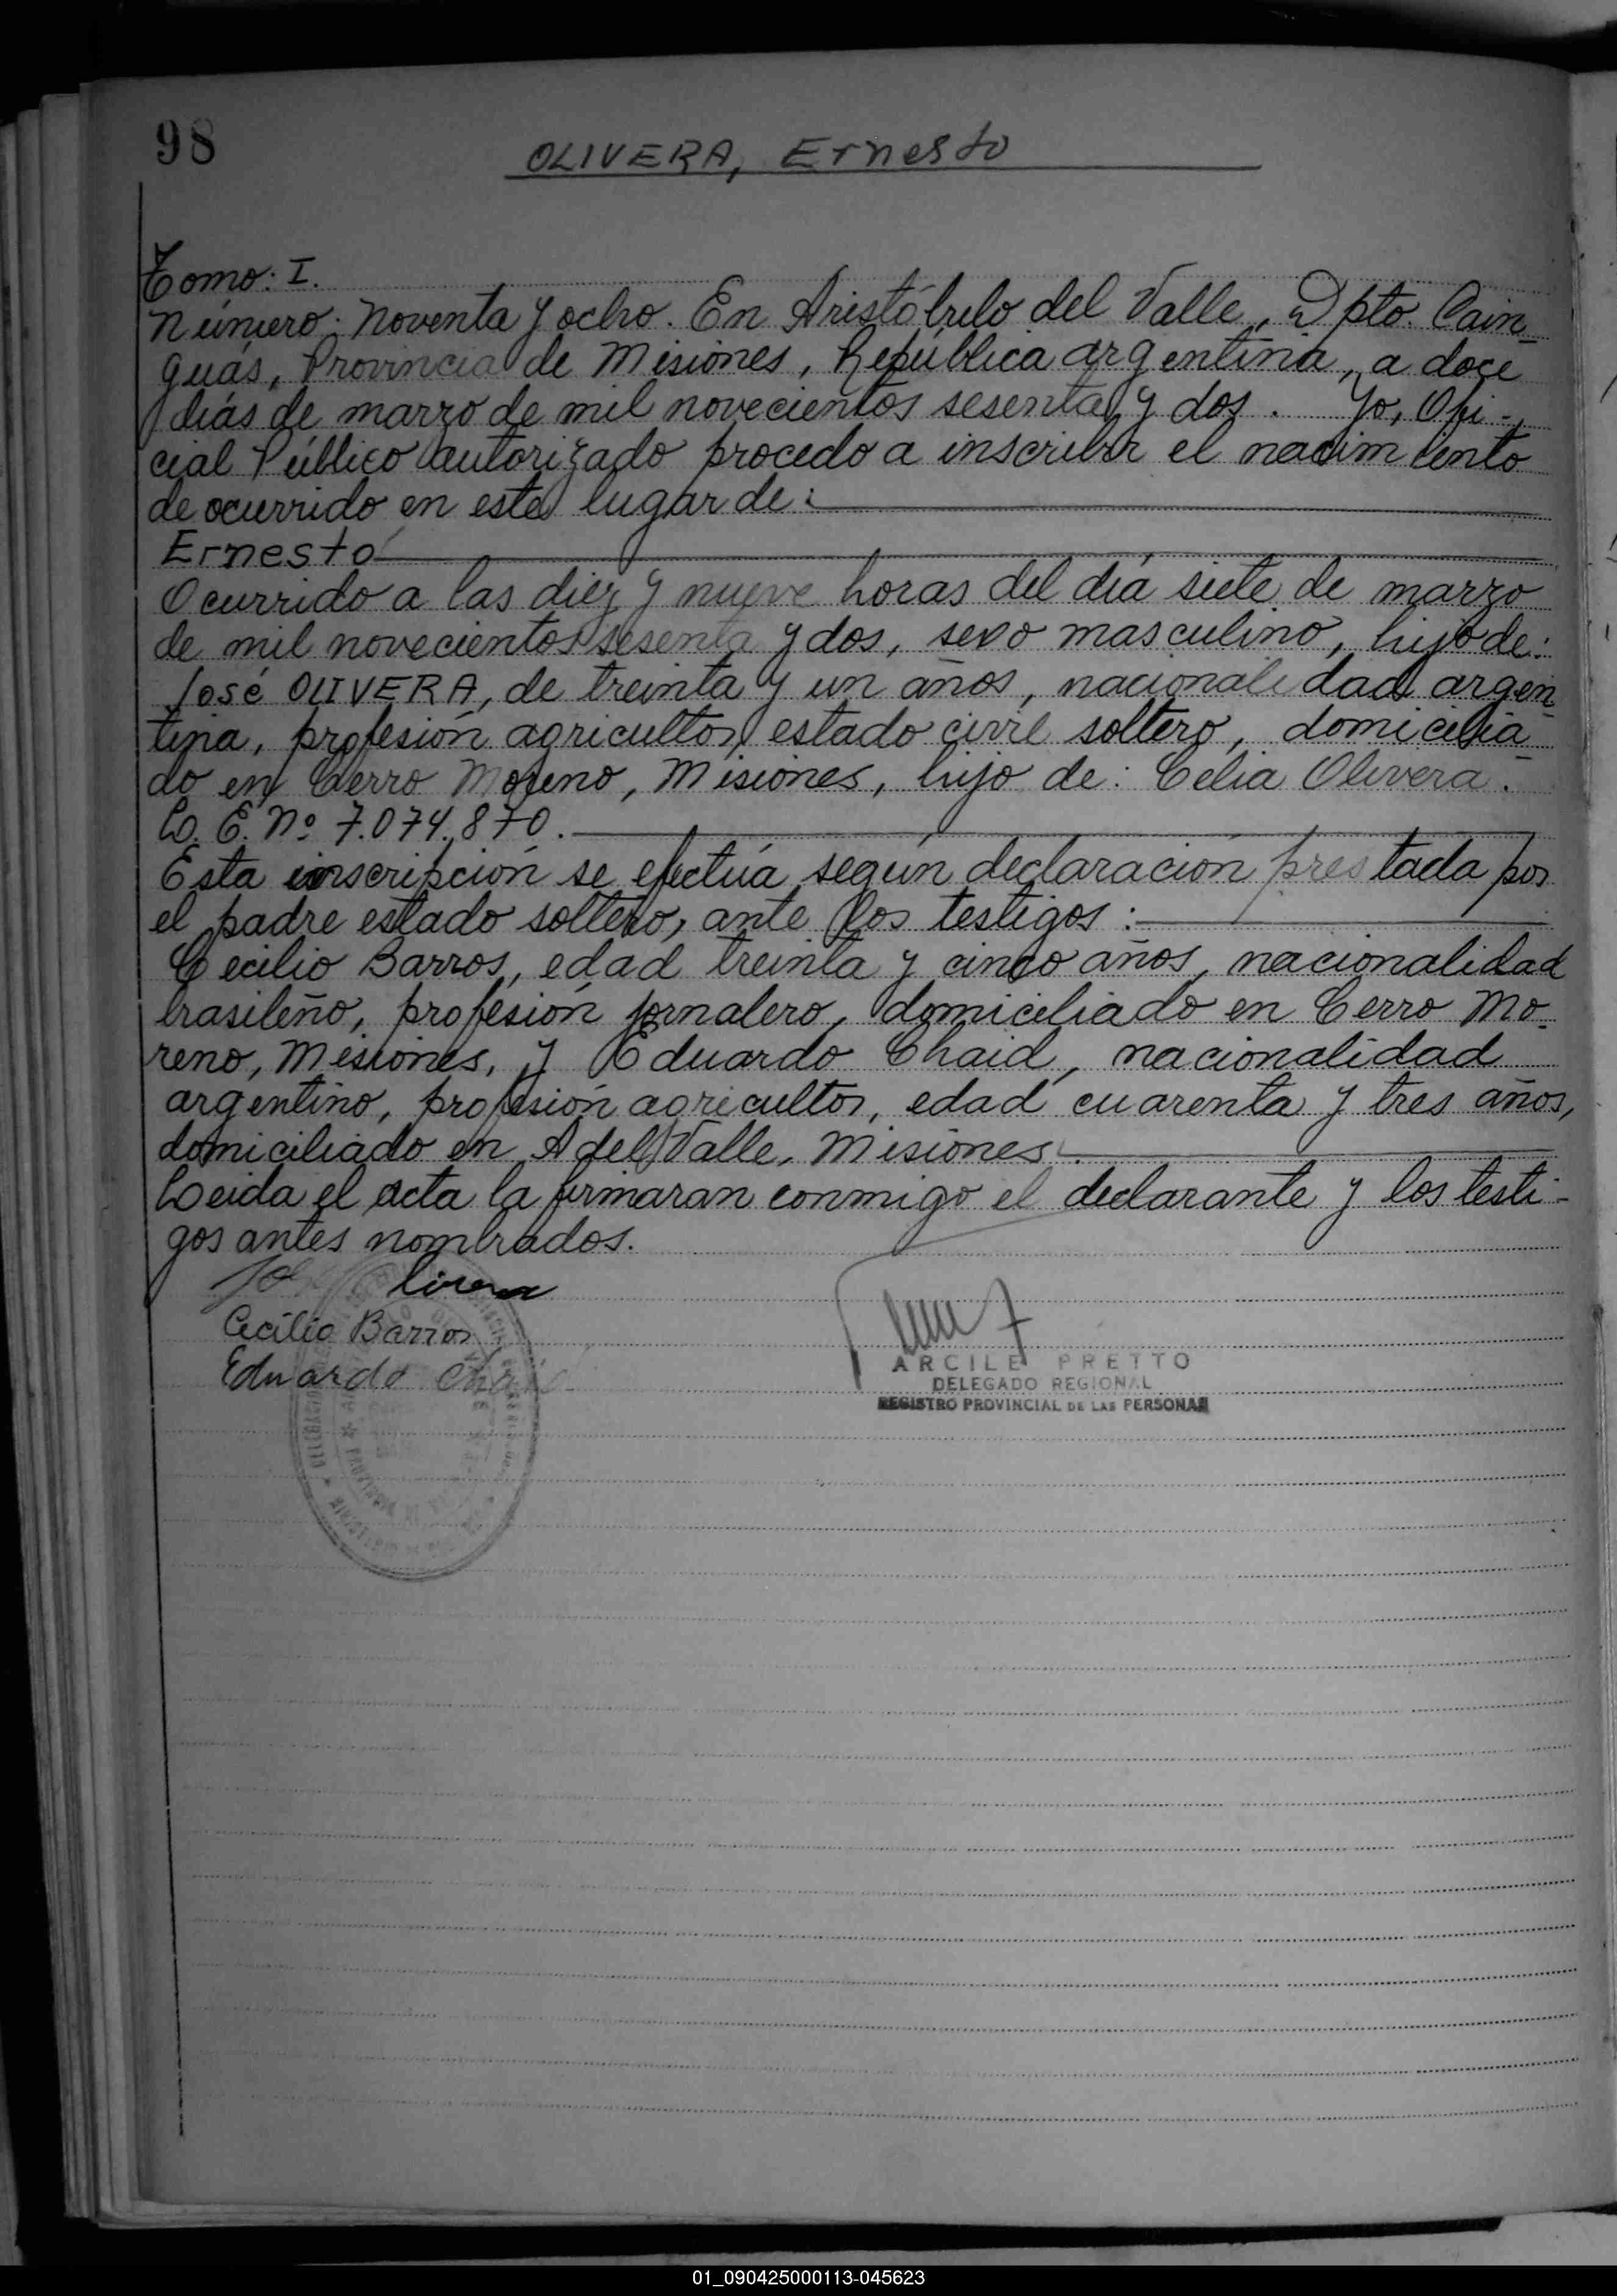 98
OLIVERA, Ernesto
Tomo: I.
Número: Noventa y ocho. En Aristóbulo del Valle, Dpto. Cain-
guás, Provincia de Misiones, República argentina, a doce
días de marzo de mil novecientos sesenta y dos. Yo, Ofi-
cial Público autorizado procedo a inscribir el nacimiento
de ocurrido en este lugar de:
Ernesto
Ocurrido a las diez y nueve horas del día siete de marzo
de mil novecientos sesenta y dos, sexo masculino, hijo de:
José OLIVERA, de treinta y un años, nacionalidad argen-
tina, profesión agricultor, estado civil soltero, domicilia-
do en Cerro Moreno, Misiones, hijo de: Celia Olivera.
L. E. Nº 7.074.870.
Esta inscripción se efectúa según declaración prestada por
el padre estado soltero, ante los testigos:
Cecilio Barros, edad treinta y cinco años, nacionalidad
brasileño, profesión jornalero, domiciliado en Cerro Mo-
reno, Misiones, y Eduardo Chaid, nacionalidad
argentino, profesión agricultor, edad cuarenta y tres años,
domiciliado en A del Valle, Misiones.
Leida el acta la firmaran conmigo el declarante y los testi-
gos antes nombrados.
Cecilio Barros
Eduardo
ARCILE PRETTO
DELEGADO REGIONAL
REGISTRO PROVINCIAL DE LAS PERSONAS
01_090425000113-045623